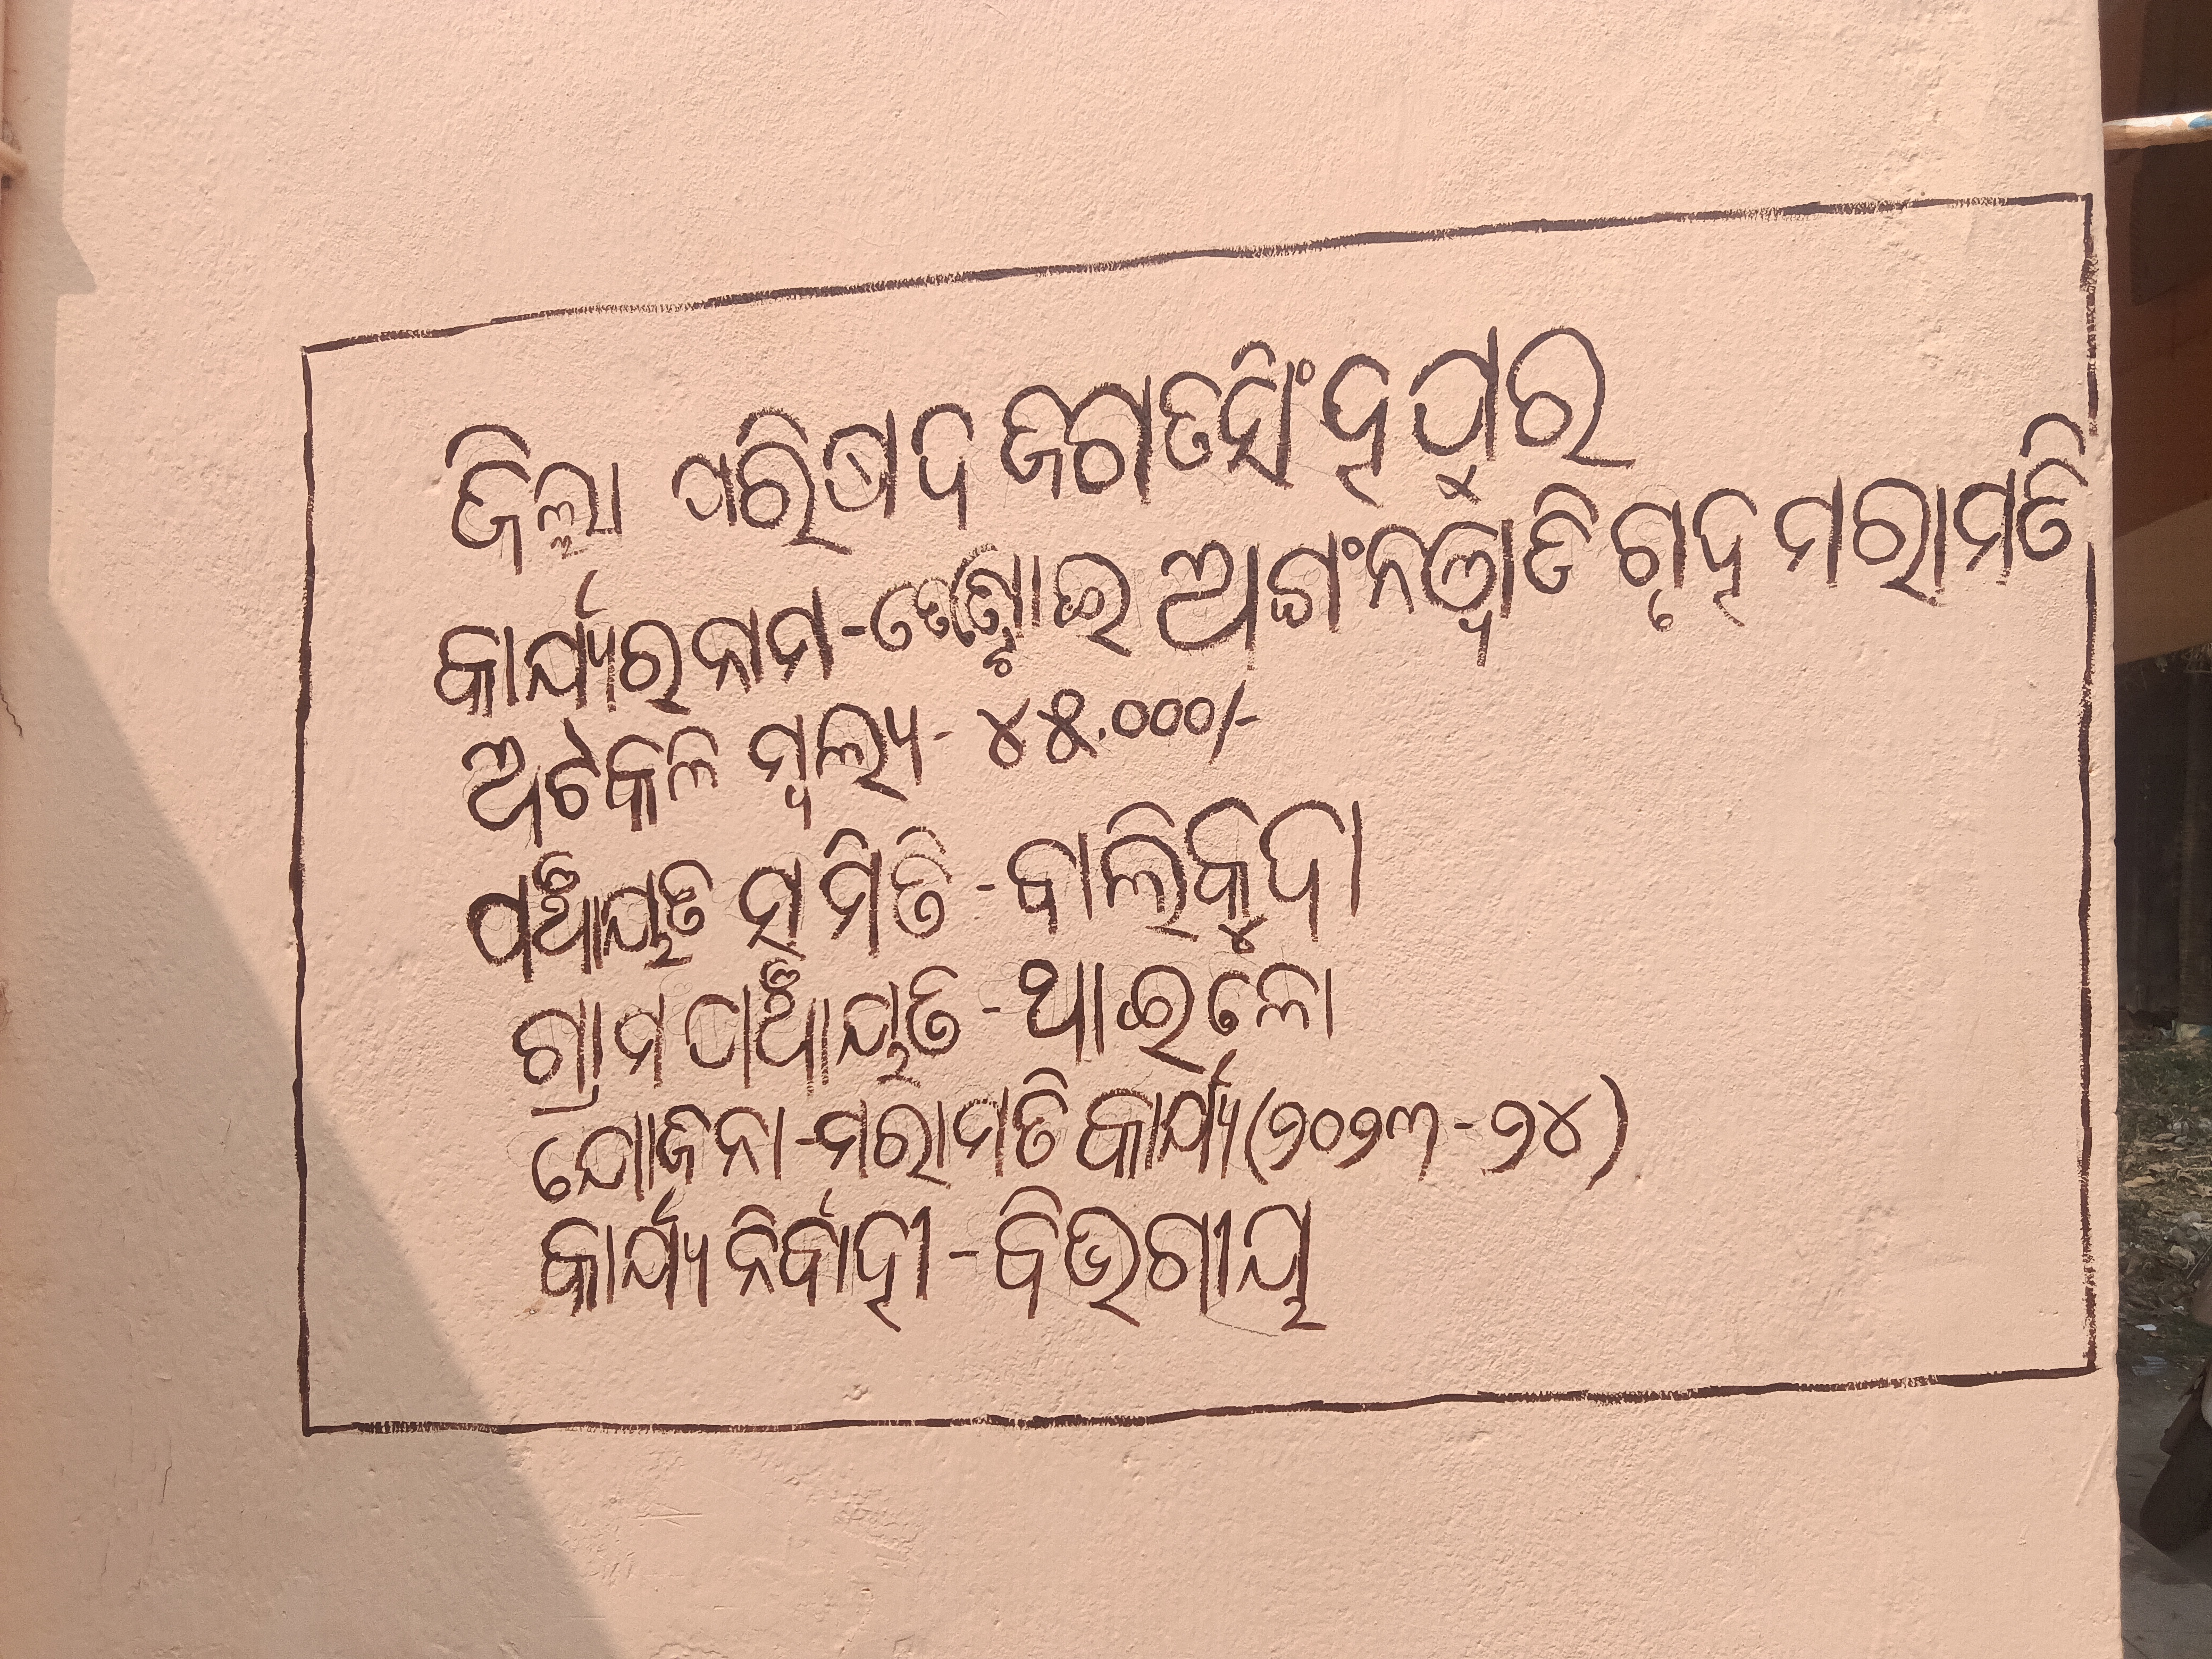 ଜିଲ୍ଲା ପରିଷଦ ଜଗତସିଂହପୁର
କାର୍ଯ୍ୟର ନାମ - ଅଗଂନୱାଡି ଗୃହ ମରାମତି
ଅଟକଳି ମୂଲ୍ୟ - ୪୫.୦୦୦/-
ପଞ୍ଚାୟତ ସମିତି - ବାଲିକୁଦା
ଗ୍ରାମ ପଞ୍ଚାୟତ - ଥାଇଲୋ
ଯୋଜନା - ମରାମତି କାର୍ଯ୍ୟ (୨୦୨୩ - ୨୪)
କାର୍ଯ୍ୟ ନିର୍ବାହୀ - ବିଭଗୀୟ